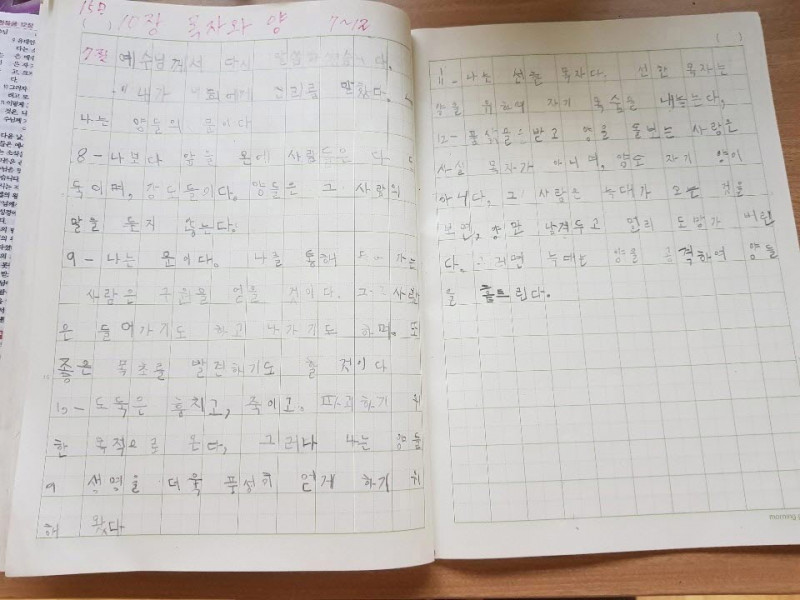 15일
10장 목자와 양 7~12
7절 예수님께서 다시 말씀하셨습니다.
"내가 너희에게 진리를 말한다.
나는 양들의 문이다
8-나보다 앞을 온에 사람들은 다
둑이며, 강도들이다. 양들은 그 사람의
말을 듣지 않는다.
9-나는 문이다. 나를 통해 가는
사람은 구원을 얻을 것이다. 그 사람
은 들어가기도 하고 나가기도 하며. 또
좋은 목초를 발견하기도 할 것이다
10-도둑은 훔치고, 죽이고. 파괴하기 위
한 목적으로 온다, 그러나 나는 양들
이 생명을 더욱 풍성히 얻게 하기 위
해 왔다
11-나는 선한 목자다. 선한 목자는
양을 위하여 자기 목숨을 내놓는다,
12-품삯을 받고 양을 돌보는 사람은
사실 목자가 아니며, 양도 자기 양이
아니다, 그 사람은 늑대가 오는 것을
보면, 양만 남겨두고 멀리 도망가 버린
다. 그러면 늑대는 양을 공격하여 양들
을 흩트린다.
morning